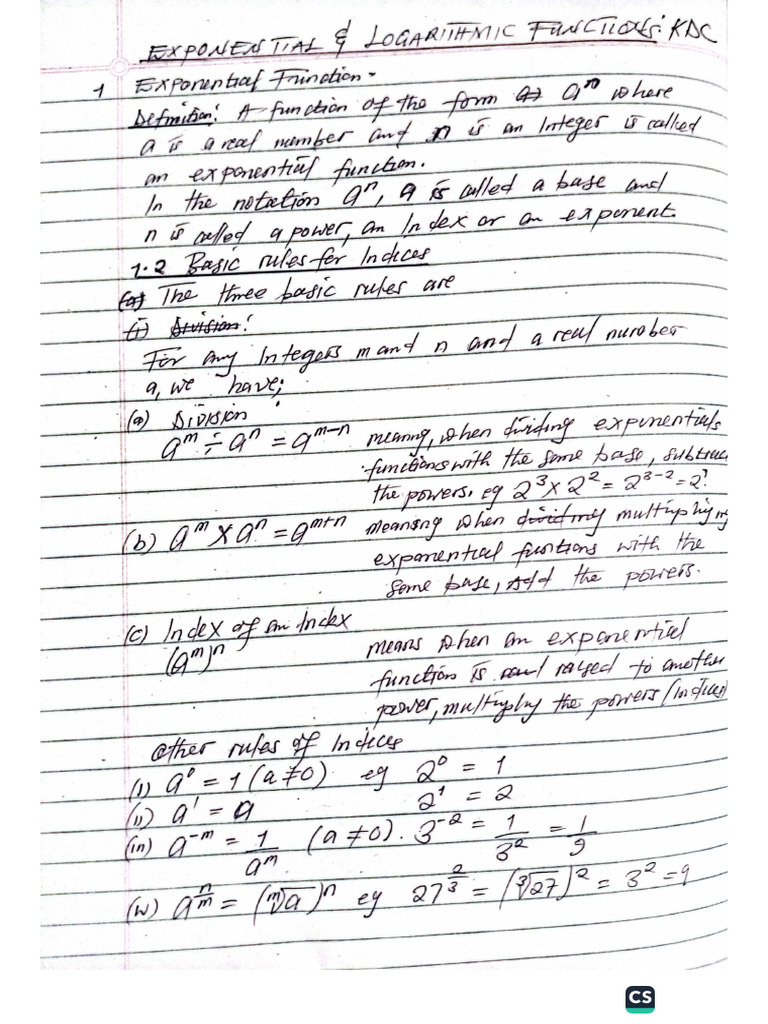 EXPONENTIAL & LOGARITHMIC FUNCTIONS: KDC
1 Exponential Function-
Definition: A function of the form a) aⁿ where
a is a real number and n is an Integer is called
an exponential function.
In the notation aⁿ, a is called a base and
n is called a power, an Index or an exponent.
1.2 Basic rules for Indices
(a) The three basic rules are
(i) Division:
For any Integers m and n and a real number
a, we have;
(a) Division
aᵐ ÷ aⁿ = aᵐ⁻ⁿ meaning, when dividing exponentials
functions with the same base, subtract
the powers. eg 2³ × 2² = 2³⁻² = 2¹.
(b) aᵐ × aⁿ = aᵐ⁺ⁿ meaning when dividing multiplying
exponential functions with the
same base, Add the powers.
(c) Index of an Index
(aᵐ)ⁿ means when an exponential
function is raised to another
power, multiplby the powers/Indices
Other rules of Indices
(i) a⁰ = 1 (a ≠ 0) eg 2⁰ = 1
(ii) a¹ = a 2¹ = 2
(iii) a⁻ᵐ = 1/aᵐ (a ≠ 0). 3⁻² = 1/3² = 1/9
(iv) a^(n/m) = (ᵐ√a)ⁿ eg 27^(2/3) = (³√27)² = 3² = 9
CS